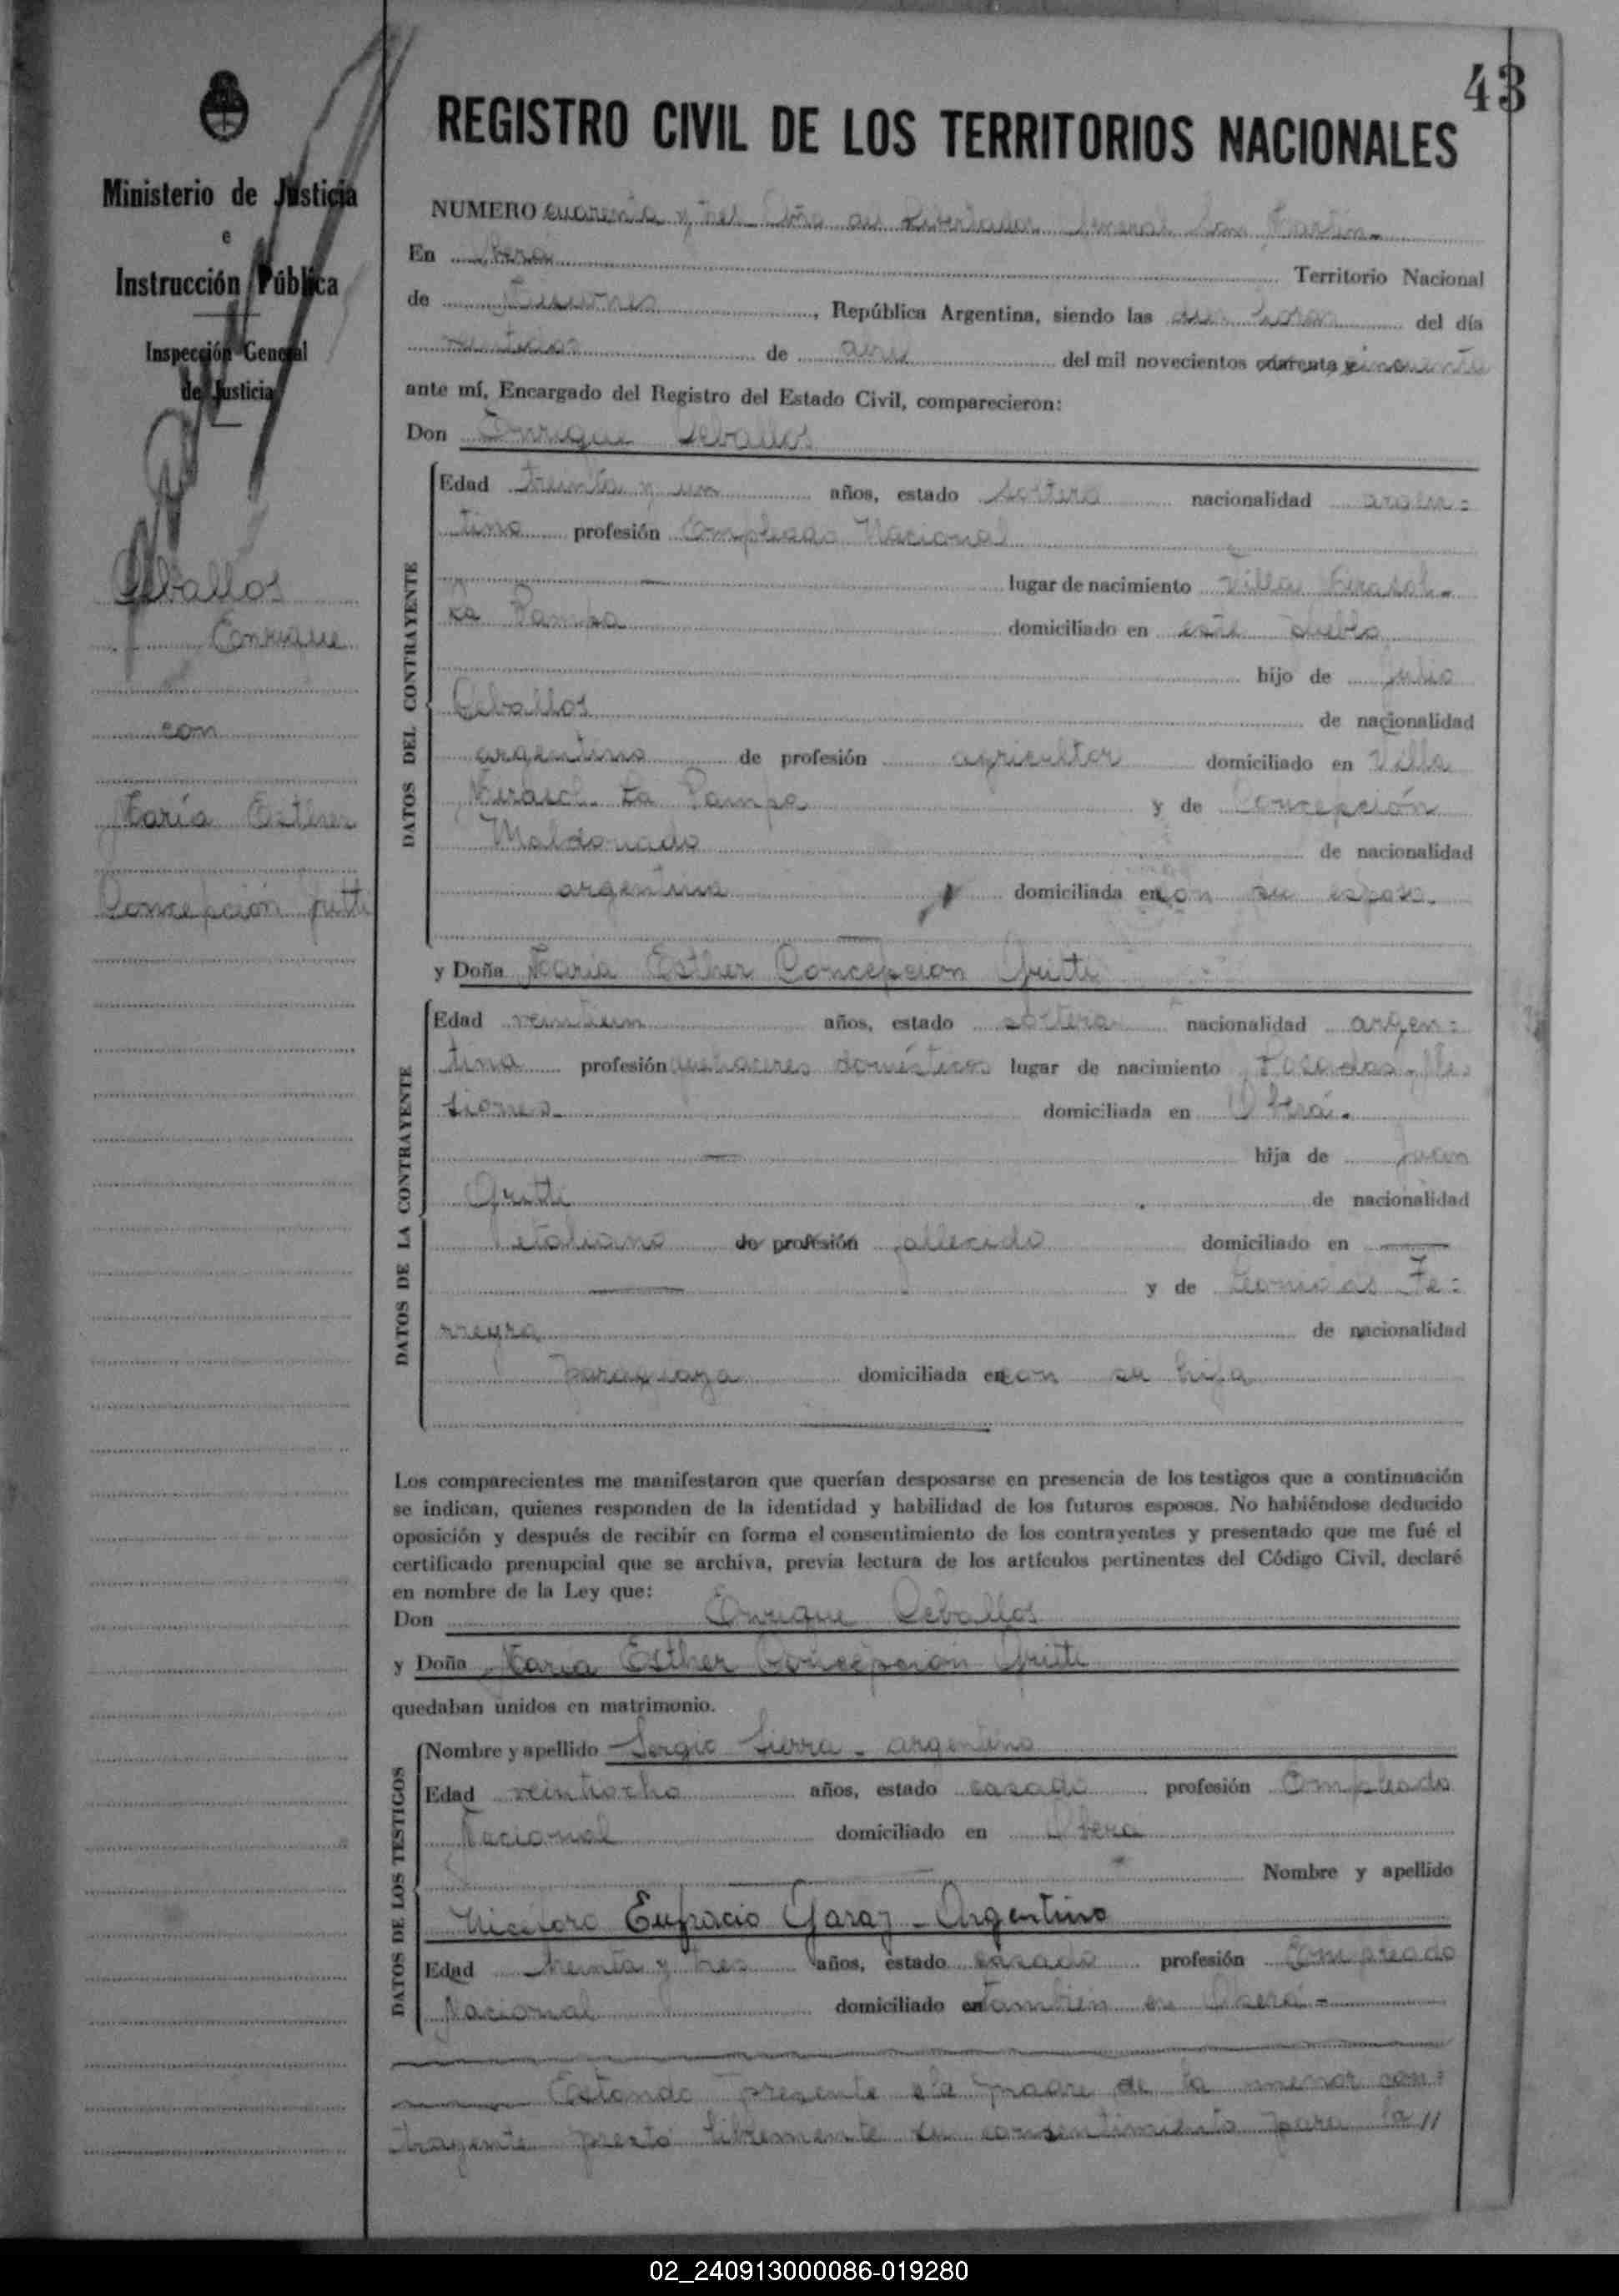 43
REGISTRO CIVIL DE LOS TERRITORIOS NACIONALES
Ministerio de Justicia
e
Instrucción Pública
Inspección General
de Justicia
Ceballos
Enrique
con
María Esther
Concepción Gritti
NUMERO cuarenta y tres Año del Libertador General San Martín
En Oberá Territorio Nacional
de Misiones, República Argentina, siendo las diez horas del día
de del mil novecientos cuarenta cincuenta
ante mí, Encargado del Registro del Estado Civil, comparecieron:
Don Enrique Ceballos
DATOS DEL CONTRAYENTE
Edad treinta y un años, estado soltero nacionalidad argen=
tino profesión Empleado Nacional
lugar de nacimiento Villa
La Pampa domiciliado en este pueblo
hijo de Julio
Ceballos de nacionalidad
argentino de profesión agricultor domiciliado en Villa
La Pampa y de Concepción
Maldonado de nacionalidad
argentina domiciliada en con su esposo.
y Doña María Esther Concepción Gritti
DATOS DE LA CONTRAYENTE
Edad años, estado soltera nacionalidad argen=
tina profesión quehaceres domésticos lugar de nacimiento Posadas. Mi=
siones domiciliada en Oberá.
hija de Juan
Gritti de nacionalidad
italiano de profesión fallecido domiciliado en
y de Leonidas Fe=
rreyra de nacionalidad
paraguaya domiciliada en con su hija
Los comparecientes me manifestaron que querían desposarse en presencia de los testigos que a continuación
se indican, quienes responden de la identidad y habilidad de los futuros esposos. No habiéndose deducido
oposición y después de recibir en forma el consentimiento de los contrayentes y presentado que me fué el
certificado prenupcial que se archiva, previa lectura de los artículos pertinentes del Código Civil, declaré
en nombre de la Ley que:
Don Enrique Ceballos
y Doña María Esther Concepción Gritti
quedaban unidos en matrimonio.
DATOS DE LOS TESTIGOS
Nombre y apellido Sergio Sierra - argentino
Edad veintiocho años, estado casado profesión Empleado
Nacional domiciliado en Oberá
Nombre y apellido
Nicéforo Eufracio Garay - Argentino
Edad treinta y tres años, estado casado profesión Empleado
Nacional domiciliado en también en Oberá -
Estando presente la madre de la menor con=
trayente prestó libremente su consentimiento para la //
02_240913000086-019280